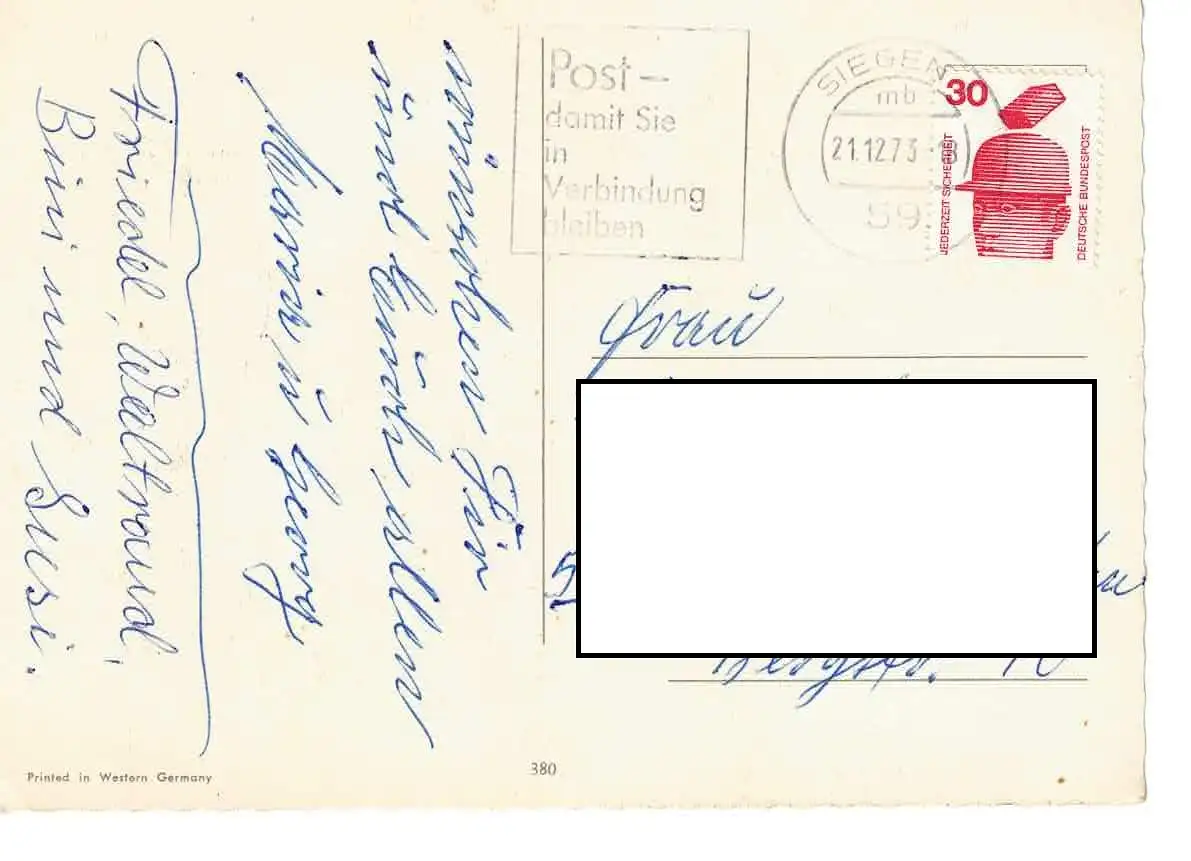 wünschen Dir
und Euch allen
Maria u Georg
Friedel, Waltraud,
Bini und Susi.
Post –
damit Sie
in
Verbindung
bleiben
SIEGEN
mb
21.12.73
59
30
JEDERZEIT SICHERHEIT
DEUTSCHE BUNDESPOST
Frau
5
Bergstr.
Printed in Western Germany
380